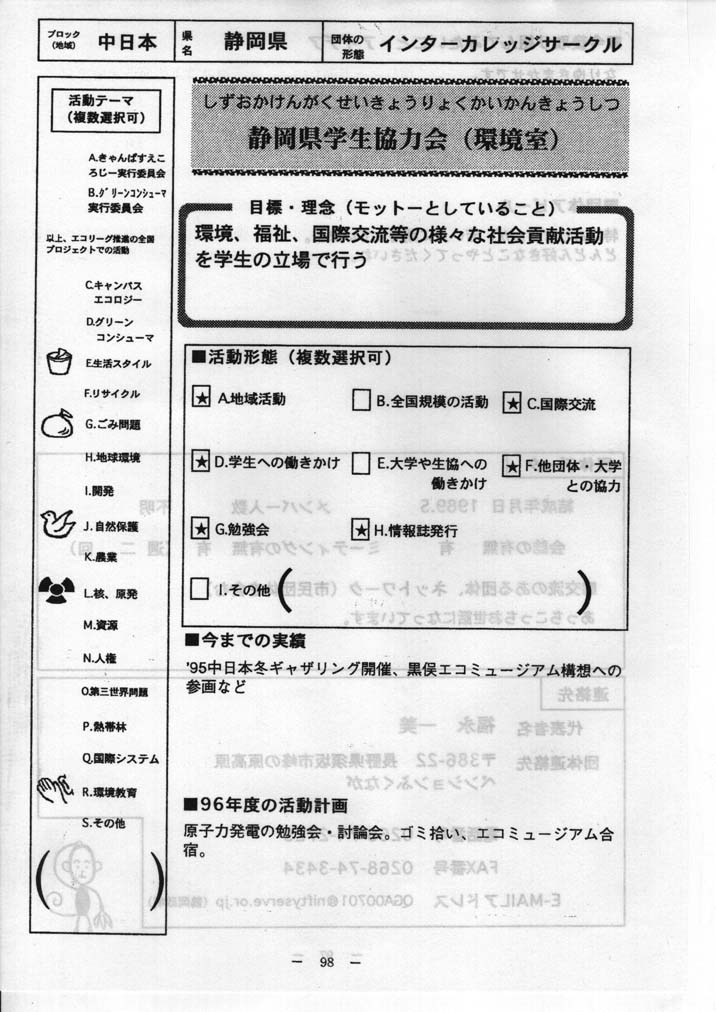 ブロック（地域） 中日本 県名 静岡県 団体の形態 インターカレッジサークル
しずおかけんがくせいきょうりょくかいかんきょうしつ
静岡県学生協力会（環境室）
目標・理念（モットーとしていること）
環境、福祉、国際交流等の様々な社会貢献活動
を学生の立場で行う
活動テーマ
（複数選択可）
A.きゃんぱすえこ
ろじー実行委員会
B.グリーンコンシューマ
実行委員会
以上、エコリーグ推進の全国
プロジェクトでの活動
C.キャンパス
エコロジー
D.グリーン
コンシューマ
E.生活スタイル
F.リサイクル
G.ごみ問題
H.地球環境
I.開発
J.自然保護
K.農業
L.核、原発
M.資源
N.人権
O.第三世界問題
P.熱帯林
Q.国際システム
R.環境教育
S.その他
（ ）
■活動形態（複数選択可）
★ A.地域活動 □ B.全国規模の活動 ★ C.国際交流
★ D.学生への働きかけ □ E.大学や生協への ★ F.他団体・大学
働きかけ との協力
★ G.勉強会 ★ H.情報誌発行
□ I.その他（ ）
■今までの実績
'95中日本冬ギャザリング開催、黒俣エコミュージアム構想への
参画など
■96年度の活動計画
原子力発電の勉強会・討論会。ゴミ拾い、エコミュージアム合
宿。
― 98 ―